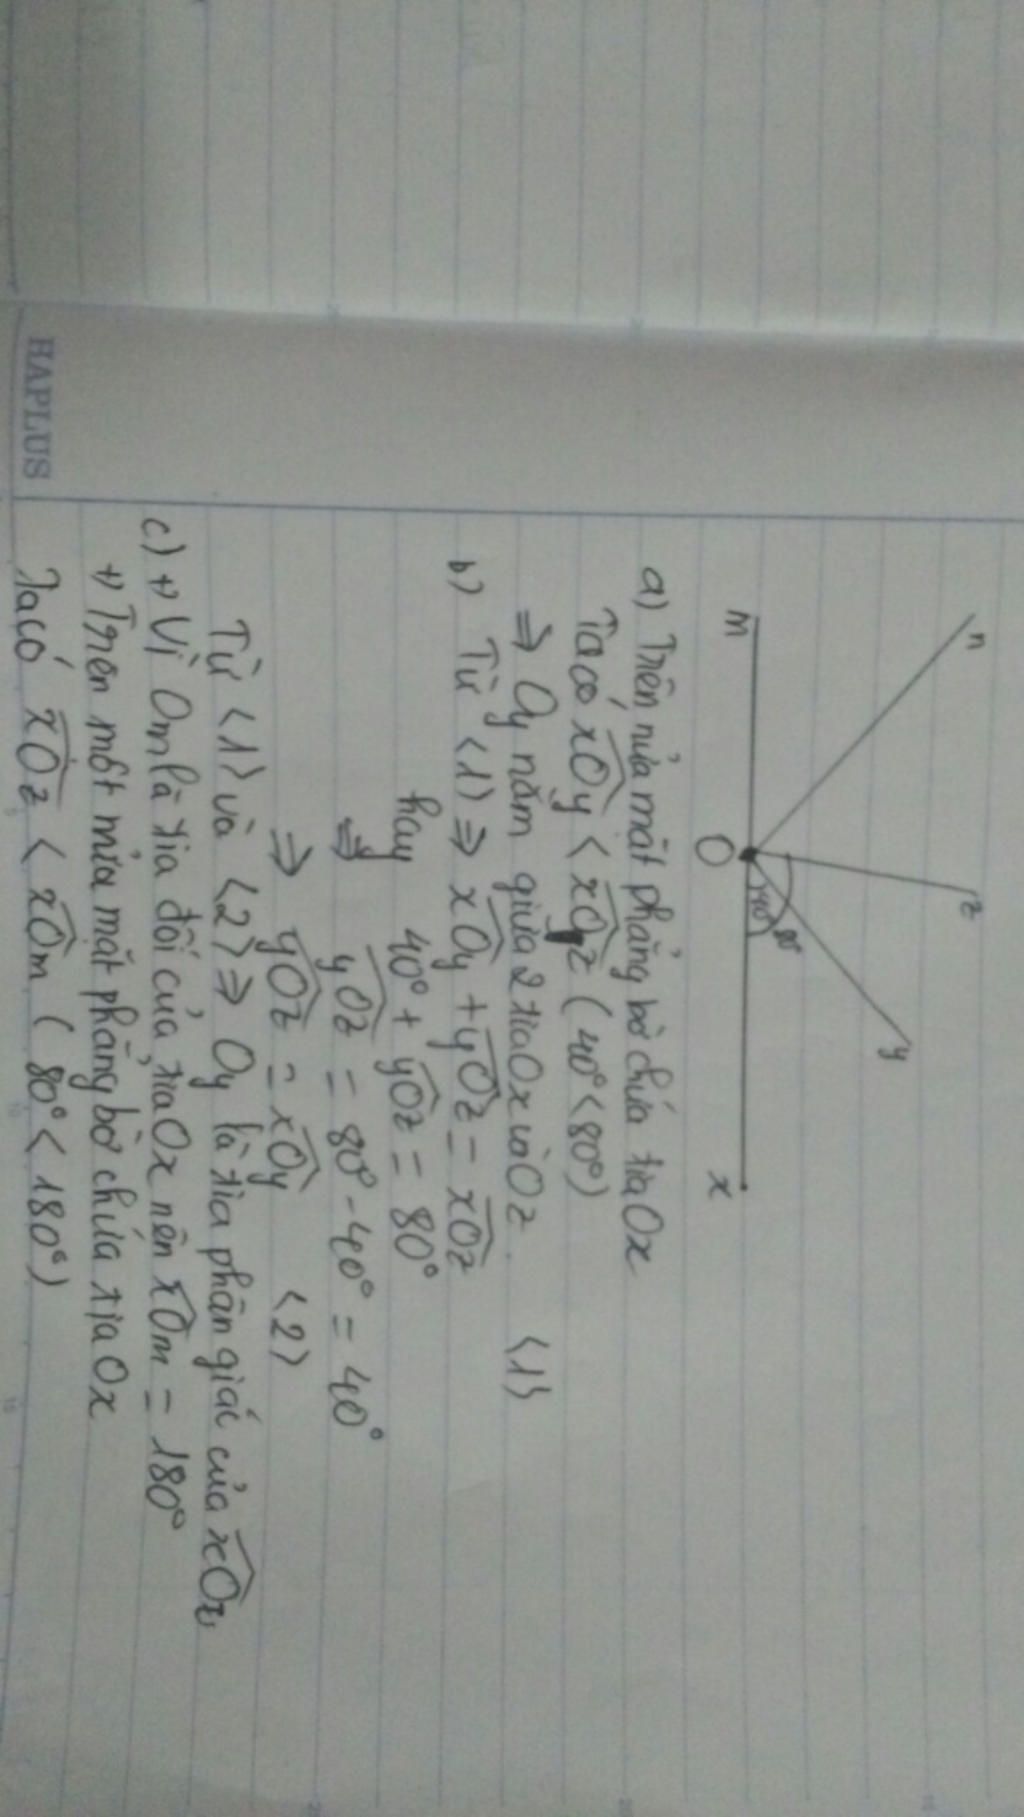 n
z
y
80°
40°
m
O
x
a) Trên nửa mặt phẳng bờ chứa tia Ox
Ta có xÔy < xÔz (40° < 80°)
⇒ Oy nằm giữa 2 tia Ox và Oz. <1>
b) Từ <1> ⇒ xÔy + yÔz = xÔz
hay 40° + yÔz = 80°
⇒ yÔz = 80° - 40° = 40°
⇒ yÔz = xÔy <2>
Từ <1> và <2> ⇒ Oy là tia phân giác của xÔz
c) +) Vì Om là tia đối của tia Ox nên xÔm = 180°
+) Trên một nửa mặt phẳng bờ chứa tia Ox
Ta có xÔz < xÔm (80° < 180°)
HAPLUS